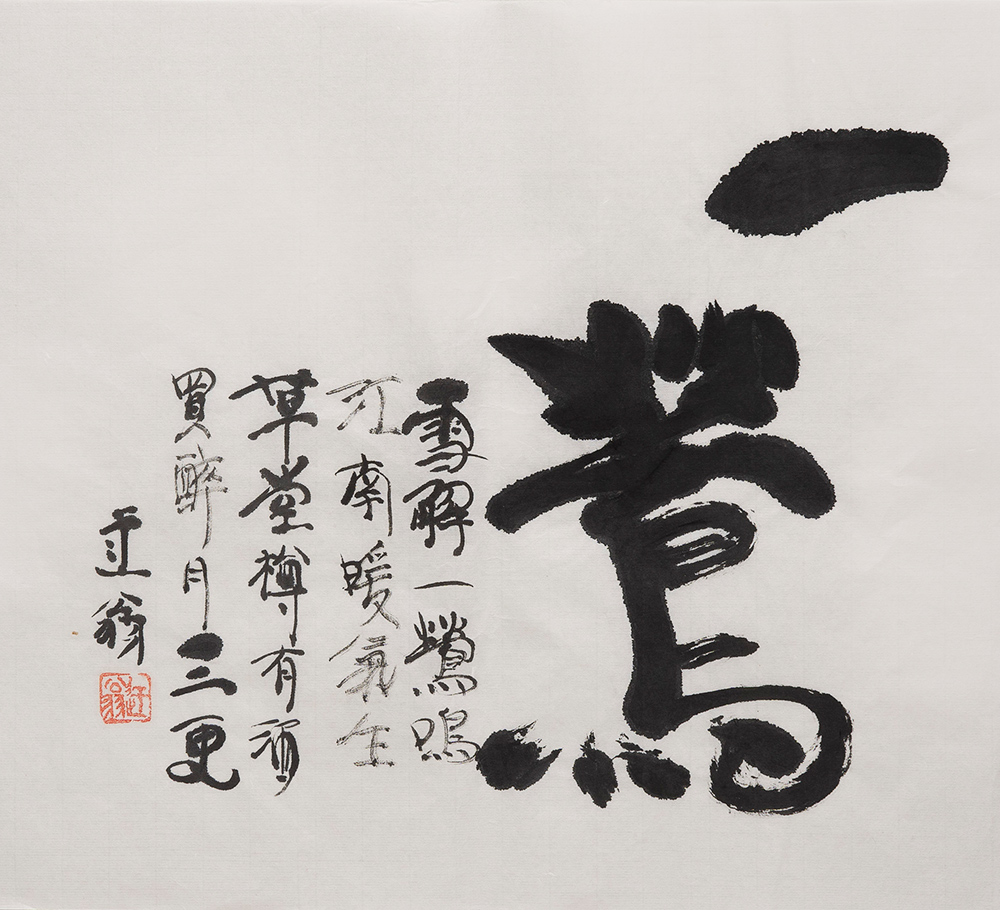 一鶯
雪解一鶯鳴
江南暖氣生
草堂樽有
買醉月三更
迂翁
迂翁